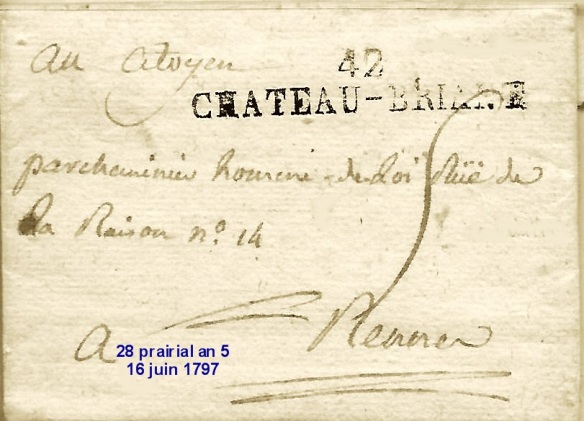 Au Citoyen
42
CHATEAU-BRIANT
parcheminier homme de Loi Rüe de
La Raison n.o 14
5
A Rennes
28 prairial an 5
16 juin 1797